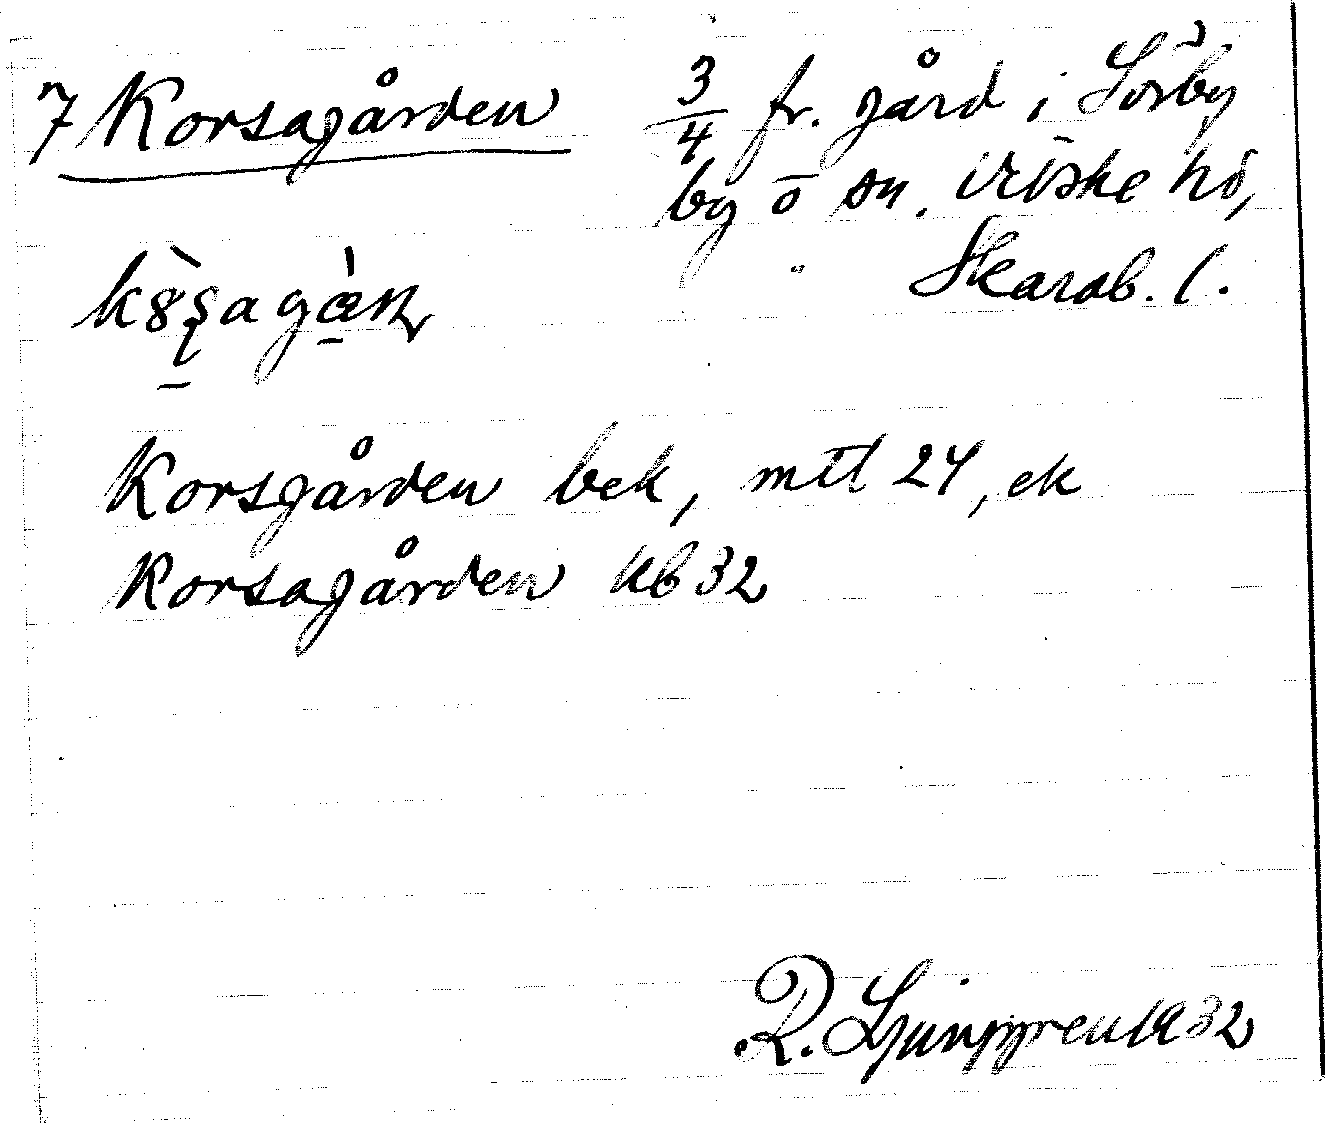 7 Korsagården 3/4 fr. gård i Sörby
by o sn. Vilske hd,
Skarab. l.
Korsgården bek, mtl 24, ek
Korsagården kb 32
R. Ljunggren 1932